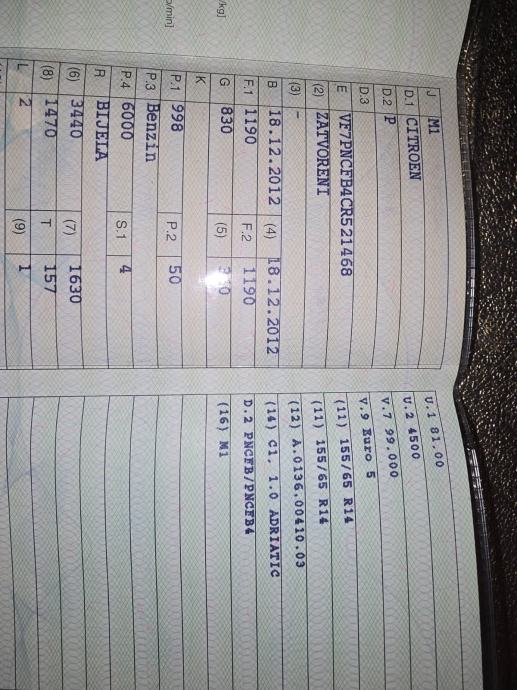 /kg]
o/min]
J M1
D.1 CITROEN
D.2 P
D.3
E VF7PNCFB4CR521468
(2) ZATVORENI
(3) -
B 18.12.2012 (4) 18.12.2012
F.1 1190 F.2 1190
G 830 (5)
K
P.1 998 P.2 50
P.3 Benzin
P.4 6000 S.1 4
R BIJELA
(6) 3440 (7) 1630
(8) 1470 T 157
L 2 (9) 1
U.1 81.00
U.2 4500
V.7 99.000
V.9 Euro 5
(11) 155/65 R14
(11) 155/65 R14
(12) A.0136.00410.03
(14) C1, 1.0 ADRIATIC
D.2 PNCFB/PNCFB4
(16) M1